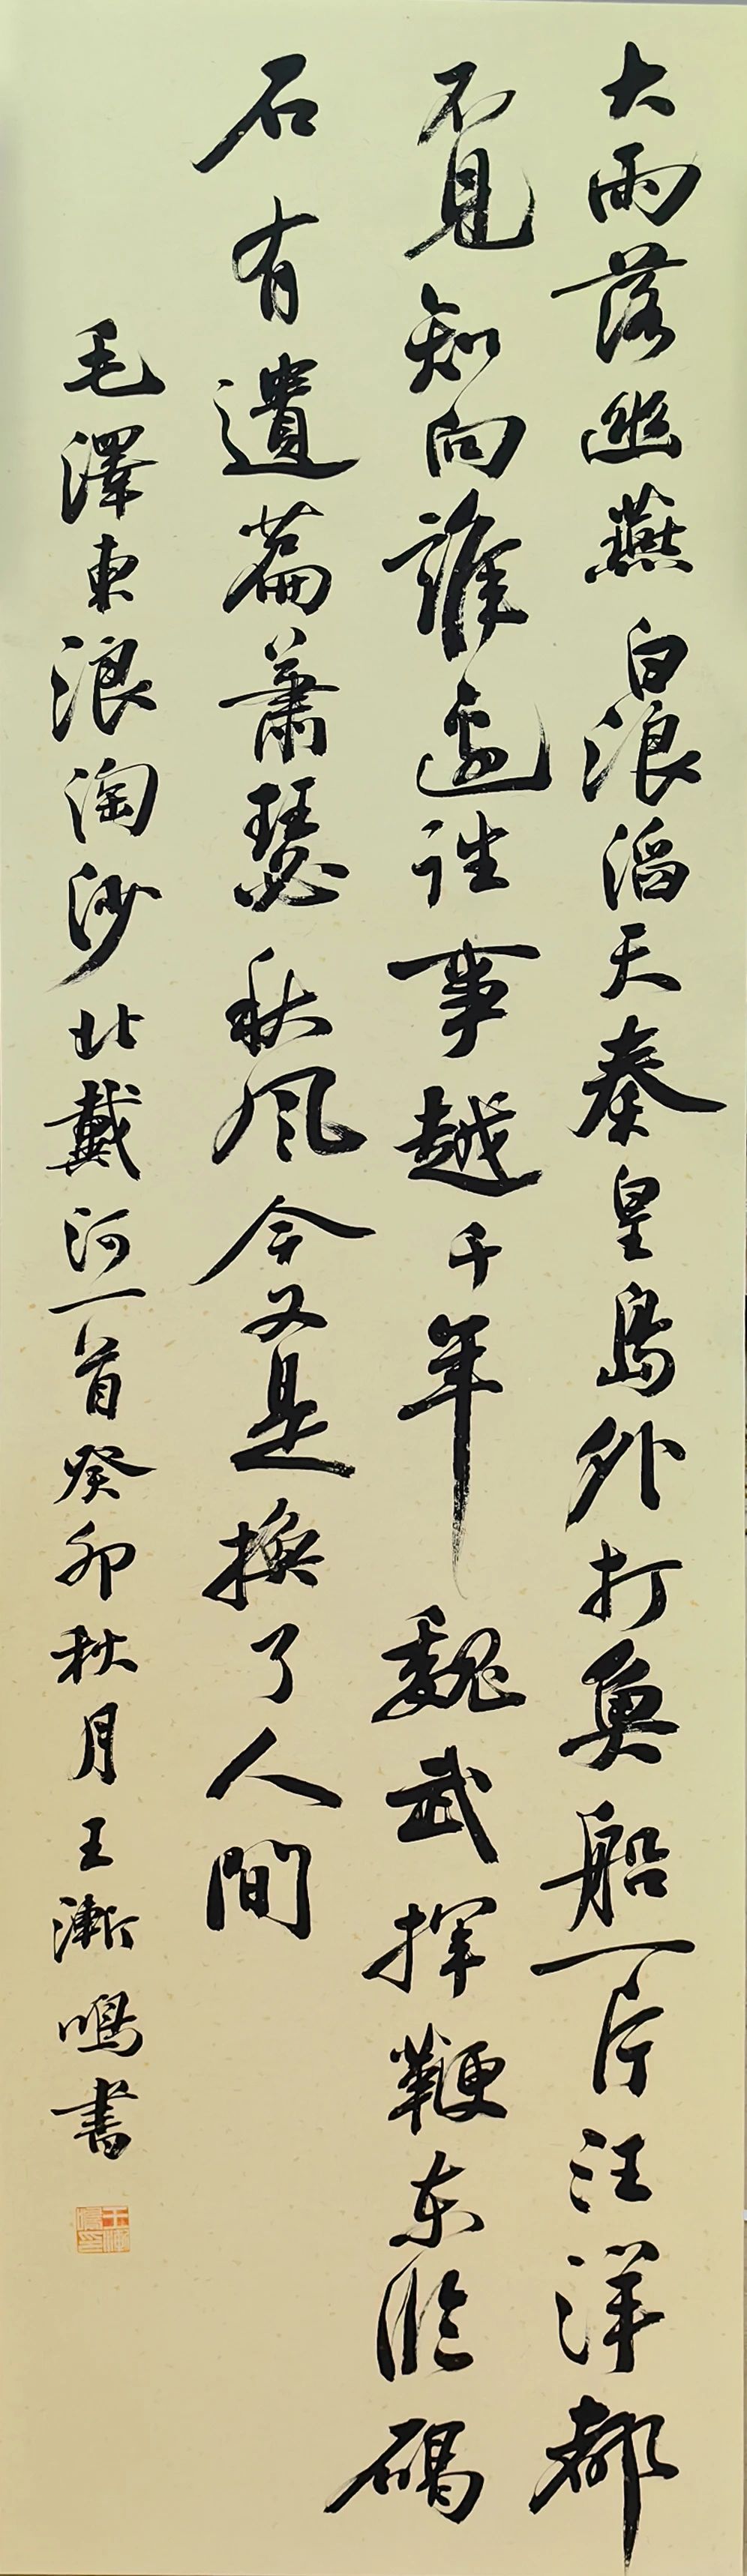 大雨落幽燕白浪滔天秦皇島外打魚船一片汪洋都
不見知向誰邊往事越千年魏武揮鞭东临碣
石有遺篇蕭瑟秋风今又是換了人間
毛澤東浪淘沙北戴河一首癸卯秋月王漸鳴書